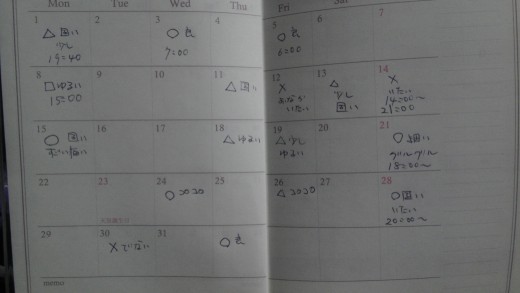 Mon Tue Wed Thu Fri Sat
1 2 3 4 5 6 7
△ 固い
少し
15:40
○ 良
7:00
○ 良
6:00
8 9 10 11 12 13 14
□ ゆるい
15:00
△ 固い
×
おなか
いたい
△
少し
固い
×
いたい
14:00〜
21:00
15 16 17 18 19 20 21
○ 固い
△ ゆるい
△ 少し
ゆるい
○ 固い
グルグル
18:00〜
22 23 24 25 26 27 28
○ コロコロ
△ コロコロ
○ 固い
いたい
20:00〜
29 30 31
× でない
○ 良
memo